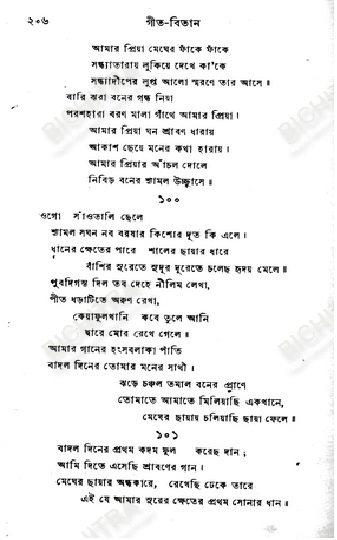 ২০৬ গীত-বিতান
আমার প্রিয়া মেঘের ফাঁকে ফাঁকে
সন্ধ্যাতারায় লুকিয়ে দেখে কা'কে
সন্ধ্যাদীপের লুপ্ত আলো স্মরণে তার আসে।
বারি ঝরা বনের গন্ধ নিয়া
পরশহারা বরণ মালা গাঁথে আমার প্রিয়া।
আমার প্রিয়া ঘন শ্রাবণ ধারায়
আকাশ ছেয়ে মনের কথা হারায়।
আমার প্রিয়ার আঁচল দোলে
নিবিড় বনের শ্যামল উচ্ছ্বাসে॥
১০০
ওগো সাঁওতালি ছেলে
শ্যামল সঘন নব বরষার কিশোর দূত কি এলে।
ধানের ক্ষেতের পারে শালের ছায়ার ধারে
বাঁশির সুরেতে সুদূর দূরেতে চলেছ হৃদয় মেলে॥
পূবদিগন্ত দিল তব দেহে নীলিম লেখা,
পীত ধড়াটিতে অরুণ রেখা,
কেয়াফুলখানি কবে তুলে আনি
দ্বারে মোর রেখে গেলে॥
আমার গানের হংসবলাকা পাঁতি
বাদল দিনের তোমার মনের সাথী।
ঝড়ে চঞ্চল তমাল বনের প্রাণে
তোমাতে আমাতে মিলিয়াছি একখানে,
মেঘের ছায়ায় চলিয়াছি ছায়া ফেলে॥
১০১
বাদল দিনের প্রথম কদম ফুল করেছ দান;
আমি দিতে এসেছি শ্রাবণের গান।
মেঘের ছায়ার অন্ধকারে, রেখেছি ঢেকে তারে
এই যে আমার সুরের ক্ষেতের প্রথম সোনার ধান।